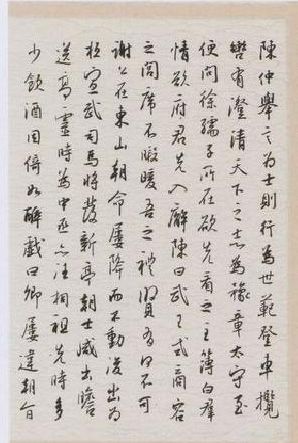 陳仲舉言為士則行為世範登車攬
轡有澄清天下之志為豫章太守至
便問徐孺子所在欲先看之主簿白群
情欲府君先入廨陳曰武王式商容
之閭席不暇暖吾之禮賢有何不可
謝公在東山朝命屢降而不動後出為
桓宣武司馬將發新亭朝士咸出瞻
送高靈時為中丞亦往相祖先時多
少飲酒因倚如醉戲曰卿屢違朝旨